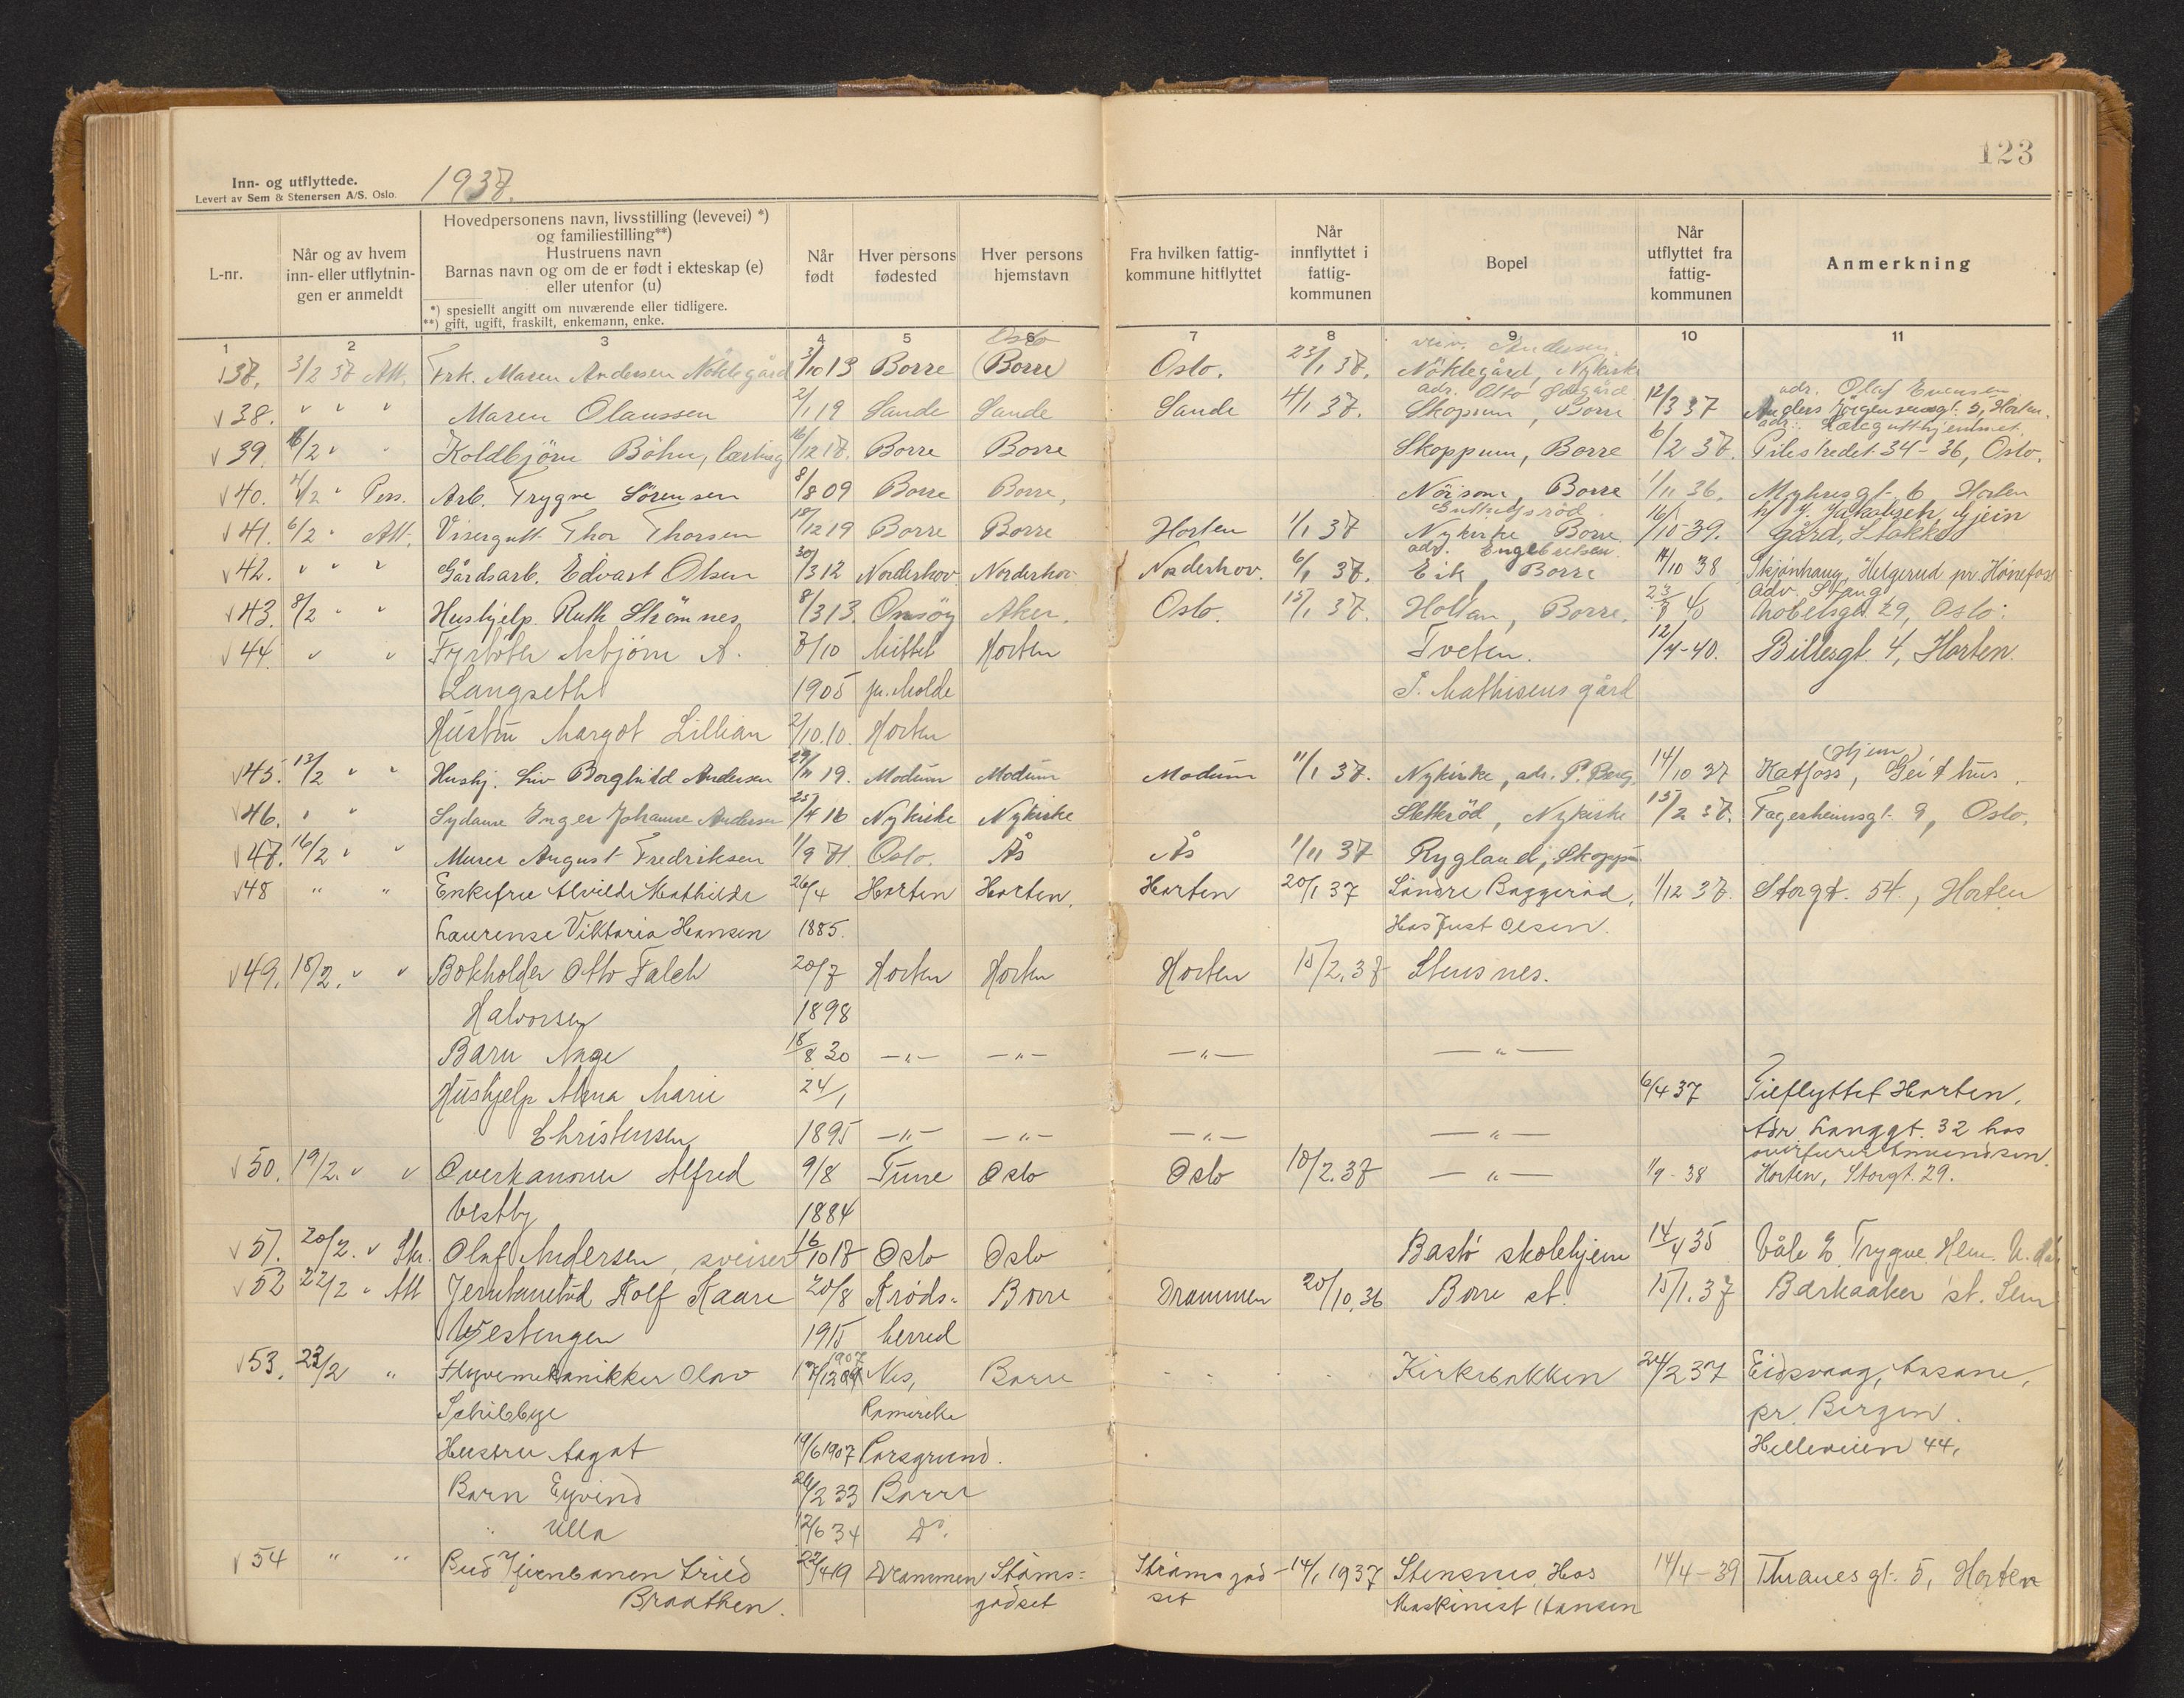 123
Inn- og utflyttede.
Levert av Sem & Stenersen A/S. Oslo.
1937.
L-nr.
Når og av hvem inn- eller utflytnin- gen er anmeldt
Hovedpersonens navn, livsstilling (levevei) *)
og familiestilling**)
Hustruens navn
Barnas navn og om de er født i ekteskap (e)
eller utenfor (u)
*) spesiellt angitt om nuværende eller tidligere.
**) gift, ugift, fraskilt, enkemann, enke.
Når født
Hver persons fødested
Hver persons hjemstavn
Fra hvilken fattig- kommune hitflyttet
Når innflyttet i fattig- kommunen
Bopel
Når utflyttet fra fattig- kommunen
Anmerkning
1 2 3 4 5 6 7 8 9 10 11
Oslo
37. 3/2 37 Att. Frk. Maren Andersen Nøklegård 3/10 13 Borre (Borre) Oslo. 23/1 37. Nøklegård, Nykirke
38. " " " Maren Olaussen 2/1 19 Sande Sande Sande 4/1 37. Skopum, Borre 12/3 37 adr. Olaf Evensen Anders Jørgensensgt. 5, Horten.
39. 6/2 " " Koldbjørn Bøhn, lærling 16/12 17. Borre Borre Skoppum, Borre 6/2 37. Pilestredet 34-36, Oslo.
40. 4/2 " Pers. Arb. Trygve Sørensen 8/8 09 Borre Borre, Nøisom, Borre 1/11 36. 6 Horten
41. 6/2 " Att. Visergutt Thor Thorsen 18/12 19 Borre Borre Horten 1/1 37 Nykirke Borre 16/10-39. gård, Stokke
42. " " " Gårdsarb. Edvart Olsen 30/3 12 Norderhov Norderhov Norderhov. 6/1 37. adr. Engebretsen. Eik, Borre 14/10 38 Skjønhaug, Helgerud pr. Hønefoss
43. 8/2 " " Hushjelp Ruth Strømnes 8/3 13. Onsøy Aker. Oslo. 15/1 37. Holtan, Borre. adr. Stang Nobelsgt. 29, Oslo.
44. " " Fyrbøter Asbjørn A. 7/10 Mittet Horten Tveten. 12/4-40. Billesgt. 4, Horten.
Langseth 1905 pr. Molde P. Mathisens gård
Hustru Margot Lillian 2/10.10. Horten
45. 13/2 " " Hushj. Liv Borghild Andersen 29/11 19. Modum Modum Modum 11/1 37. Nykirke, adr. P. Berg. 14/10 37 (Hjem) Katfoss, Geithus.
46. " " Sydame Inger Johanne Andersen 25/4 16 Nykirke Nykirke Sletterød, Nykirke 15/2 37. Fagerheimsgt. 9, Oslo.
47. 16/2 " " Murer August Fredriksen 1/9 71 Oslo. Ås Ås 1/11 37 Rygland, Skoppum
48 " " Enkefru Alvilde Mathilde 26/4 Horten Horten. Horten 20/1 37 Søndre Baggerød. 1/12 37. Storgt. 54, Horten
Laurense Viktoria Hansen 1885. Hos Just Olsen.
49. 18/2. " " Bokholder Otto Falch 20/7 Horten Horten Horten 15/2.37 Stensnes.
Halvorsen 1898
Barn Aage 18/8 30 -"- -"- -"- -"-
Hushjelp Alma Marie 24/1 6/4 37 Tilflyttet Horten.
Christensen 1895 -"- -"- -"- -"- Adr Langgt. 32 hos
50. 19/2. " " Overkanoner Alfred 9/8 Tune Oslo Oslo 10/2.37 -"- 1/9-38 Horten, Storgt. 29.
Vestby 1884
51. 20/2. " Skr. Olaf Andersen, sveiser 16/10 17 Oslo Oslo Bastø skolehjem 14/4 35 Våle
52 22/2 " Att Jernbanebud Rolf Kaare 20/8 Krøds= Borre Drammen 20/10.36 Borre st. 15/1.37 Barkaaker st. Sem
Vestengen 1915 herred
53. 23/2 " Flyvemekanikker Olav 1907 Nes, Borre Kirkebakken 24/2 37 Eidsvaag, Aasane,
Schilbbye Romerike pr. Bergen.
Hustru Aagot 19/6 1907 Porsgrund. Helleveien 44.
Barn Eyvind 26/2 33 Borre
" Ulla 12/6 34 Do.
54 " " Bud Jernbanen Fried 22/4 19 Drammen Strøms= Strømsgod- 14/1 1937 Stensnes, Hos 14/4-39 Thranes gt. 5, Horten
Braathen. godset set Maskinist Hansen